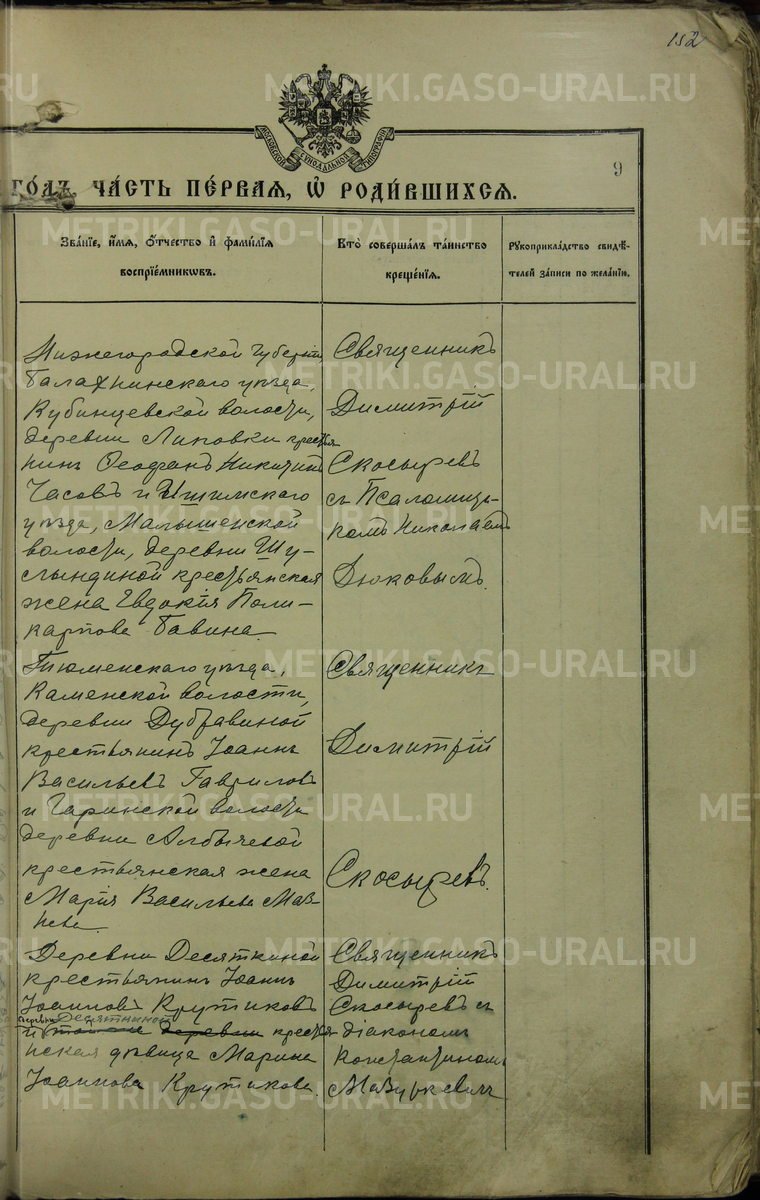 152
МОСКОВСКОЙ СѴНОДАЛЬНОЙ ТИПОГРАФІИ
9
ГО́ДЪ, ЧА́СТЬ ПЕ́РВАЯ, Ѡ҆ РОДИ́ВШИХСЯ.
Зва́ніе, и҆́мя, ѻ҆́тчество и҆ фами́лїя
воспрїе́мниковъ.
Кто̀ соверша́лъ та́инство
креще́нїя.
Рꙋкоприкла́дство свидѣ́-
телей за́писи по жела́нїю.
Нижегородской губерніи,
Балахнинскаго уѣзда,
Кубинцевской волости,
деревни Липовки крестья
нинъ Ѳеофанъ Никитинъ
Часовъ и Ишимскаго
уѣзда, Малышенской
волости, деревни Шу-
слындиной крестьянская
жена Евдокія Поли-
карпова Бавина.
Священникъ
Димитрій
Скосыревъ
съ Псаломщи-
комъ Николаемъ
Дюковымъ.
Тюменскаго уѣзда,
Каменской волости,
деревни Дубравиной
крестьянинъ Іоаннъ
Васильевъ Гавриловъ
и Гаринской волости
деревни Албычевой
крестьянская жена
Марія Васильева Маз-
нева.
Священникъ
Димитрій
Скосыревъ.
Деревни Десяткиной
крестьянинъ Іоаннъ
Іоанновъ Крутиковъ
деревни Десяткиной
и той же деревни крестья
нская дѣвица Марина
Іоаннова Крутикова.
Священникъ
Димитрій
Скосыревъ съ
діакономъ
Константиномъ
Мазуркевичъ
METRIKI.GASO-URAL.RU